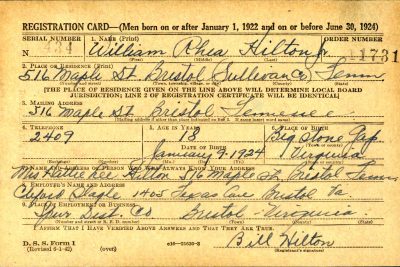 REGISTRATION CARD—(Men born on or after January 1, 1922 and on or before June 30, 1924)
SERIAL NUMBER 1. NAME (Print) ORDER NUMBER
N 34 William Rhea Hilton Jr. 11731
(First) (Middle) (Last)
2. PLACE OF RESIDENCE (Print)
516 Maple St. Bristol Sullivan Co Tenn
[THE PLACE OF RESIDENCE GIVEN ON THE LINE ABOVE WILL DETERMINE LOCAL BOARD
JURISDICTION; LINE 2 OF REGISTRATION CERTIFICATE WILL BE IDENTICAL]
3. MAILING ADDRESS
516 Maple St. Bristol Tennessee
4. TELEPHONE 5. AGE IN YEARS 6. PLACE OF BIRTH
2409 18 Big Stone Gap
DATE OF BIRTH
January 9 1924 Virginia
7. NAME AND ADDRESS OF PERSON WHO WILL ALWAYS KNOW YOUR ADDRESS
Mrs Hattie Lee Hilton 516 Maple St. Bristol Tenn
8. EMPLOYER'S NAME AND ADDRESS
1405 Texas Ave Bristol Va
9. PLACE OF EMPLOYMENT OR BUSINESS
Dist. Co Bristol - Virginia
I AFFIRM THAT I HAVE VERIFIED ABOVE ANSWERS AND THAT THEY ARE TRUE.
D. S. S. Form 1
(Revised 6-1-42) (over)
Bill Hilton